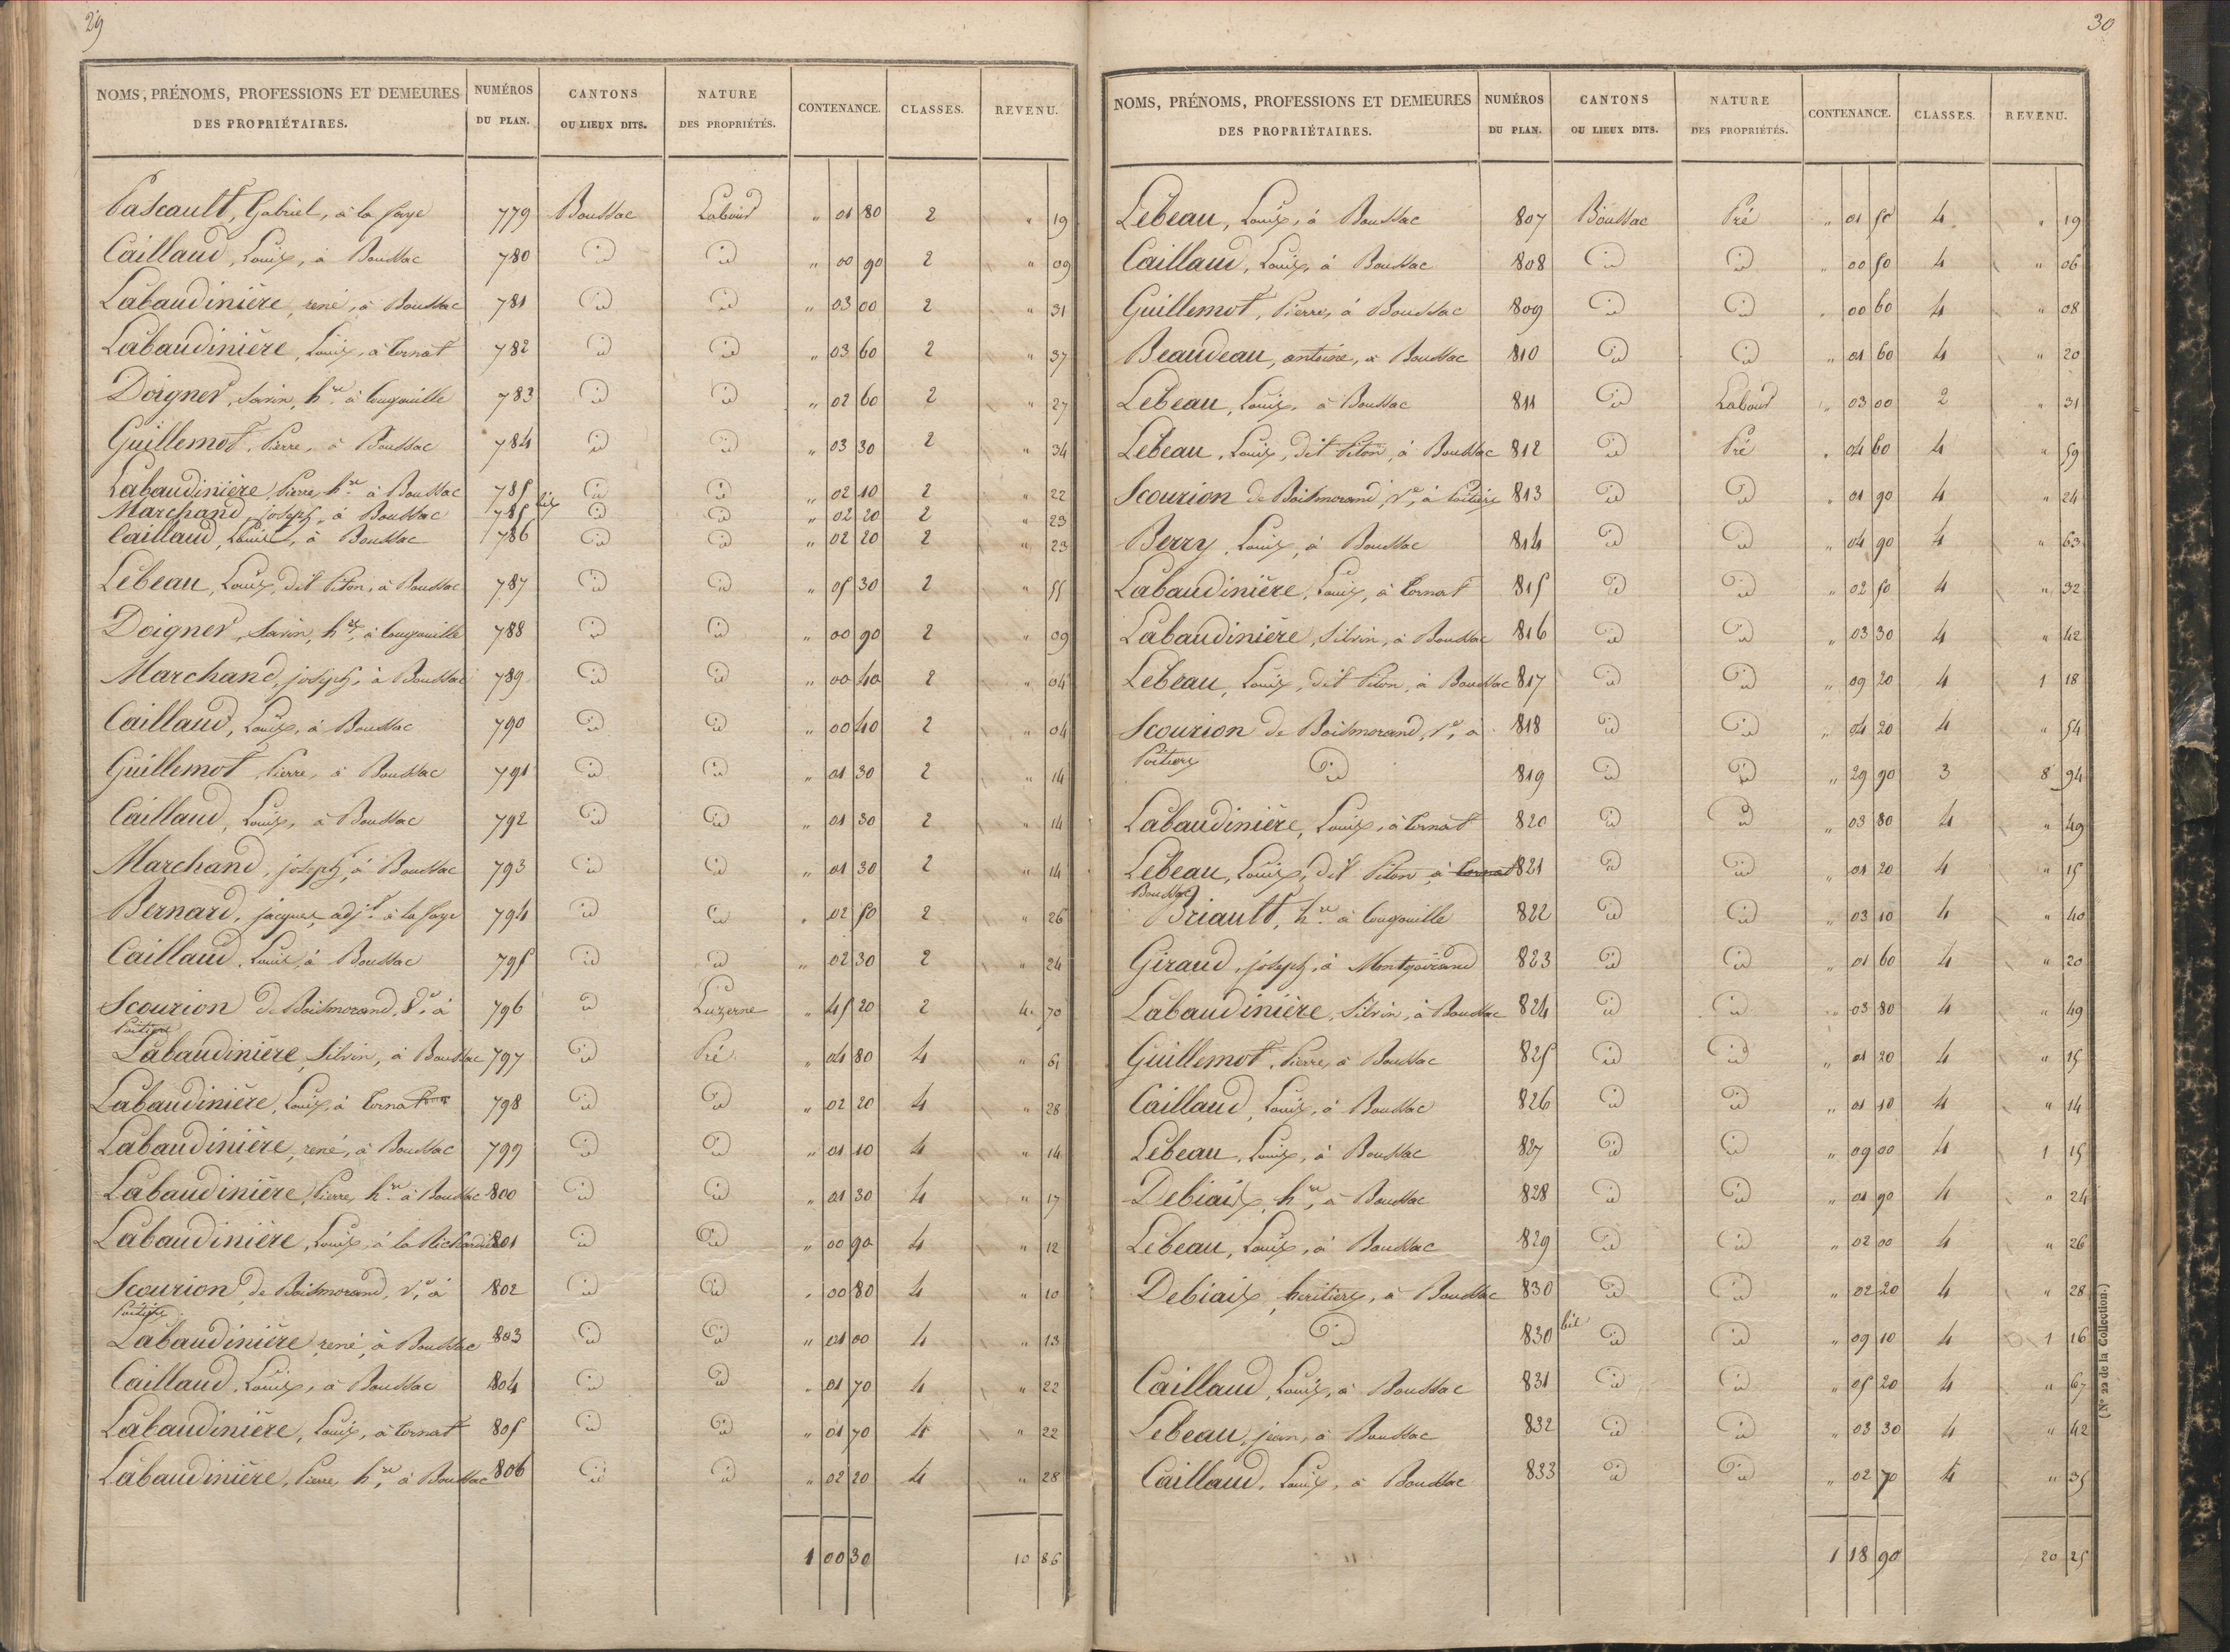 29
NOMS, PRÉNOMS, PROFESSIONS ET DEMEURES DES PROPRIÉTAIRES. NUMÉROS DU PLAN. CANTONS OU LIEUX DITS. NATURE DES PROPRIÉTÉS. CONTENANCE. CLASSES. REVENU.
Pascault, Gabriel, à la faye 779 Boussac Labour " 01 80 2 " 19
Caillaud, Louis, à Boussac 780 id id " 00 90 2 " 09
Labaudinière, rené, à Boussac 781 id id " 03 00 2 " 31
Labaudinière, Louis, à Cornat 782 id id " 03 60 2 " 37
Doigner, Savin, hre à 783 id id " 02 60 2 " 27
Guillemot, Pierre, à Boussac 784 id id " 03 30 2 " 34
Labaudinière, Pierre, hre à Boussac 785 id id " 02 10 2 " 22
Marchand, joseph, à Boussac 785 bis id id " 02 20 2 " 23
Caillaud, Louis, à Boussac 786 id id " 02 20 2 " 23
Lebeau, Louis, dit Piton, à Boussac 787 id id " 05 30 2 " 55
Doigner, Savin, hre, à 788 id id " 00 90 2 " 09
Marchand, joseph, à Boussac 789 id id " 00 40 2 " 04
Caillaud, Louis, à Boussac 790 id id " 00 40 2 " 04
Guillemot, Pierre, à Boussac 791 id id " 01 30 2 " 14
Caillaud, Louis, à Boussac 792 id id " 01 30 2 " 14
Marchand, joseph, à Boussac 793 id id " 01 30 2 " 14
Bernard, jacques, adjt à la faye 794 id id " 02 50 2 " 26
Caillaud, Louis, à Boussac 795 id id " 02 30 2 " 24
Scourion de Boismorand, Ve, à 796 id Luzerne " 45 20 2 4 70
Poitiers
Labaudinière, Silvin, à Boussac 797 id Pré " 04 80 4 " 61
Labaudinière, Louis, à Cornat 798 id id " 02 20 4 " 28
Labaudinière, rené, à Boussac 799 id id " 01 10 4 " 14
Labaudinière, Pierre, hre à Boussac 800 id id " 01 30 4 " 17
Labaudinière, Louis, à la 801 id id " 00 90 4 " 12
Scourion de Boismorand, Ve, à 802 id id " 00 80 4 " 10
Poitiers
Labaudinière, rené, à Boussac 803 id id " 01 00 4 " 13
Caillaud, Louis, à Boussac 804 id id " 01 70 4 " 22
Labaudinière, Louis, à Cornat 805 id id " 01 70 4 " 22
Labaudinière, Pierre, hre, à Boussac 806 id id " 02 20 4 " 28
1 00 30 10 86
30
NOMS, PRÉNOMS, PROFESSIONS ET DEMEURES DES PROPRIÉTAIRES. NUMÉROS DU PLAN. CANTONS OU LIEUX DITS. NATURE DES PROPRIÉTÉS. CONTENANCE. CLASSES. REVENU.
Lebeau, Louis, à Boussac 807 Boussac Pré " 01 50 4 " 19
Caillaud, Louis, à Boussac 808 id id " 00 50 4 " 06
Guillemot, Pierre, à Boussac 809 id id " 00 60 4 " 08
Beaudeau, antoine, à Boussac 810 id id " 01 60 4 " 20
Lebeau, Louis, à Boussac 811 id Labour " 03 00 2 " 31
Lebeau, Louis, dit Piton, à Boussac 812 id Pré " 04 60 4 " 59
Scourion de Boismorand, Ve, à Poitiers 813 id id " 01 90 4 " 24
Berry, Louis, à Boussac 814 id id " 04 90 4 " 63
Labaudinière, Louis, à Cornat 815 id id " 02 50 4 " 32
Labaudinière, Silvin, à Boussac 816 id id " 03 30 4 " 42
Lebeau, Louis, dit Piton, à Boussac 817 id id " 09 20 4 1 18
Scourion de Boismorand, Ve, à 818 id id " 04 20 4 " 54
Poitiers
id 819 id id " 29 90 3 8 94
Labaudinière, Louis, à Cornat 820 id id " 03 80 4 " 49
Lebeau, Louis, dit Piton, à Cornat 821 id id " 01 20 4 " 15
Boussac
Briault, hre à 822 id id " 03 10 4 " 40
Giraud, joseph, à 823 id id " 01 60 4 " 20
Labaudinière, Silvin, à Boussac 824 id id " 03 80 4 " 49
Guillemot, Pierre, à Boussac 825 id id " 01 20 4 " 15
Caillaud, Louis, à Boussac 826 id id " 01 10 4 " 14
Lebeau, Louis, à Boussac 827 id id " 09 00 4 1 15
Debiais, hre, à Boussac 828 id id " 01 90 4 " 24
Lebeau, Louis, à Boussac 829 id id " 02 00 4 " 26
Debiais, heritiers, à Boussac 830 id id " 02 20 4 " 28
id 830 bis id id " 09 10 4 1 16
Caillaud, Louis, à Boussac 831 id id " 05 20 4 " 67
Lebeau, jean, à Boussac 832 id id " 03 30 4 " 42
Caillaud, Louis, à Boussac 833 id id " 02 70 4 " 35
1 18 90 20 25
(N° 22 de la Collection.)